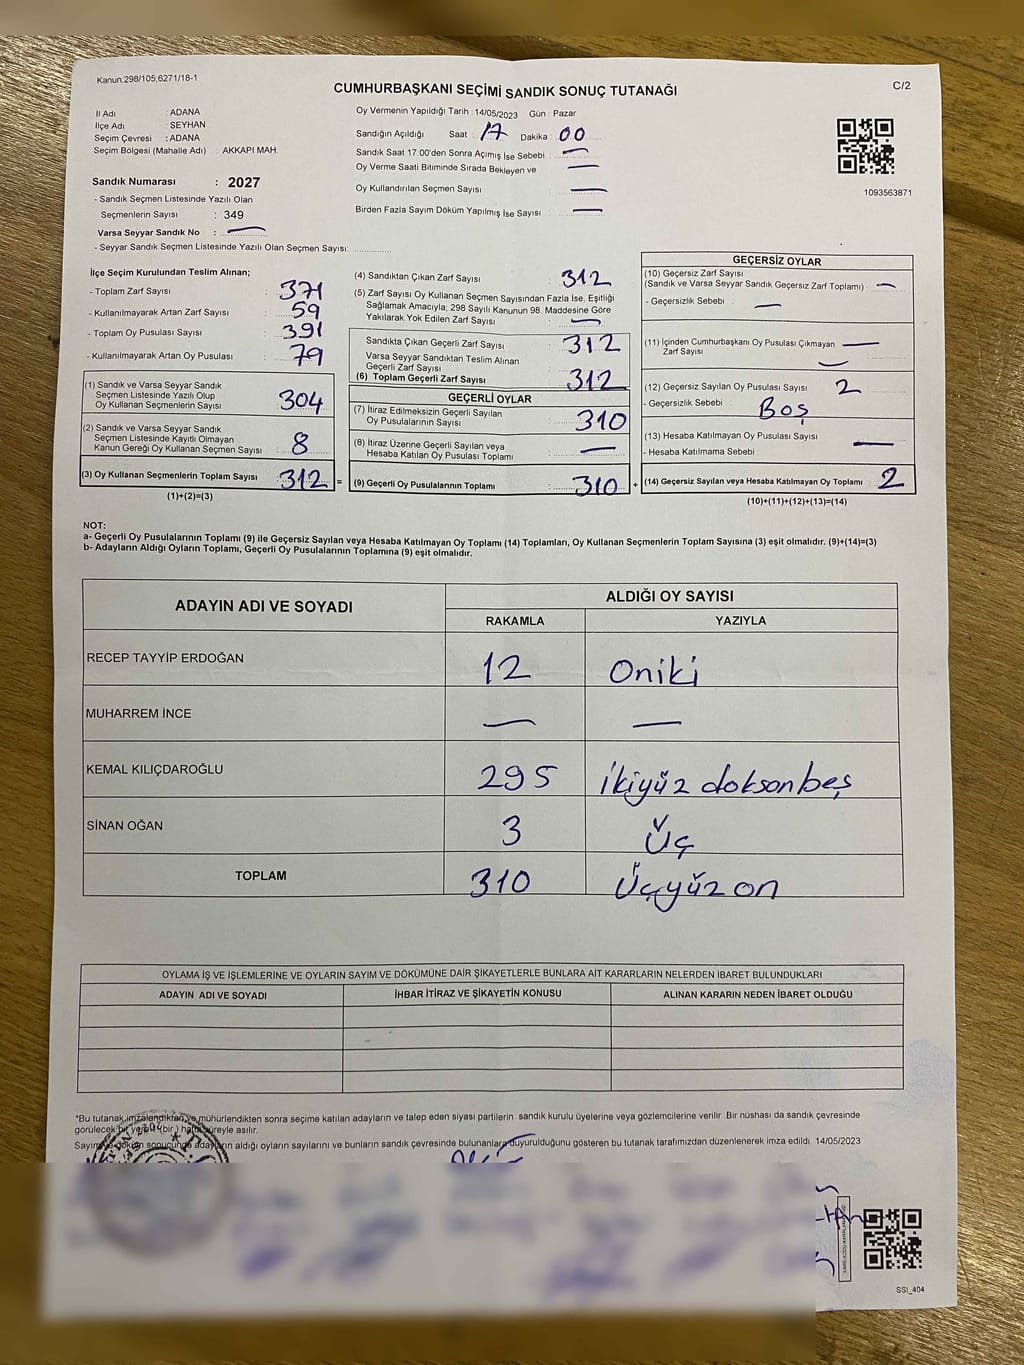 Kanun;298/105,6271/18-1
CUMHURBAŞKANI SEÇİMİ SANDIK SONUÇ TUTANAĞI
C/2
İl Adı : ADANA
İlçe Adı : SEYHAN
Seçim Çevresi : ADANA
Seçim Bölgesi (Mahalle Adı) : AKKAPI MAH.
Oy Vermenin Yapıldığı Tarih : 14/05/2023 Gün : Pazar
Sandığın Açıldığı Saat : 17 Dakika : 00
Sandık Saat 17:00'den Sonra Açımış İse Sebebi : —
Oy Verme Saati Bitiminde Sırada Bekleyen ve —
Oy Kullandırılan Seçmen Sayısı —
Birden Fazla Sayım Döküm Yapılmış İse Sayısı : —
1093563871
Sandık Numarası : 2027
- Sandık Seçmen Listesinde Yazılı Olan
Seçmenlerin Sayısı : 349
Varsa Seyyar Sandık No : —
- Seyyar Sandık Seçmen Listesinde Yazılı Olan Seçmen Sayısı:
İlçe Seçim Kurulundan Teslim Alınan;
- Toplam Zarf Sayısı : 371
- Kullanılmayarak Artan Zarf Sayısı : 59
- Toplam Oy Pusulası Sayısı : 391
- Kullanılmayarak Artan Oy Pusulası : 79
(1) Sandık ve Varsa Seyyar Sandık
Seçmen Listesinde Yazılı Olup
Oy Kullanan Seçmenlerin Sayısı : 304
(2) Sandık ve Varsa Seyyar Sandık
Seçmen Listesinde Kayıtlı Olmayan
Kanun Gereği Oy Kullanan Seçmen Sayısı : 8
(3) Oy Kullanan Seçmenlerin Toplam Sayısı : 312 =
(1)+(2)=(3)
(4) Sandıktan Çıkan Zarf Sayısı : 312
(5) Zarf Sayısı Oy Kullanan Seçmen Sayısından Fazla İse, Eşitliği
Sağlamak Amacıyla; 298 Sayılı Kanunun 98. Maddesine Göre
Yakılarak Yok Edilen Zarf Sayısı : —
Sandıkta Çıkan Geçerli Zarf Sayısı : 312
Varsa Seyyar Sandıktan Teslim Alınan
Geçerli Zarf Sayısı :
(6) Toplam Geçerli Zarf Sayısı : 312
GEÇERLİ OYLAR
(7) İtiraz Edilmeksizin Geçerli Sayılan
Oy Pusulalarının Sayısı : 310
(8) İtiraz Üzerine Geçerli Sayılan veya
Hesaba Katılan Oy Pusulası Toplamı : —
(9) Geçerli Oy Pusulalarının Toplamı : 310 +
GEÇERSİZ OYLAR
(10) Geçersiz Zarf Sayısı
(Sandık ve Varsa Seyyar Sandık Geçersiz Zarf Toplamı) : —
- Geçersizlik Sebebi : —
(11) İçinden Cumhurbaşkanı Oy Pusulası Çıkmayan —
Zarf Sayısı : —
(12) Geçersiz Sayılan Oy Pusulası Sayısı : 2
- Geçersizlik Sebebi : Boş
(13) Hesaba Katılmayan Oy Pusulası Sayısı : —
- Hesaba Katılmama Sebebi :
(14) Geçersiz Sayılan veya Hesaba Katılmayan Oy Toplamı : 2
(10)+(11)+(12)+(13)=(14)
NOT:
a- Geçerli Oy Pusulalarının Toplamı (9) ile Geçersiz Sayılan veya Hesaba Katılmayan Oy Toplamı (14) Toplamları, Oy Kullanan Seçmenlerin Toplam Sayısına (3) eşit olmalıdır. (9)+(14)=(3)
b- Adayların Aldığı Oyların Toplamı, Geçerli Oy Pusulalarının Toplamına (9) eşit olmalıdır.
ADAYIN ADI VE SOYADI ALDIĞI OY SAYISI
RAKAMLA YAZIYLA
RECEP TAYYİP ERDOĞAN 12 Oniki
MUHARREM İNCE — —
KEMAL KILIÇDAROĞLU 295 ikiyüz doksanbeş
SİNAN OĞAN 3 Üç
TOPLAM 310 Üçyüz on
OYLAMA İŞ VE İŞLEMLERİNE VE OYLARIN SAYIM VE DÖKÜMÜNE DAİR ŞİKAYETLERLE BUNLARA AİT KARARLARIN NELERDEN İBARET BULUNDUKLARI
ADAYIN ADI VE SOYADI İHBAR İTİRAZ VE ŞİKAYETİN KONUSU ALINAN KARARIN NEDEN İBARET OLDUĞU
*Bu tutanak imzalandıktan ve mühürlendikten sonra seçime katılan adayların ve talep eden siyasi partilerin sandık kurulu üyelerine veya gözlemcilerine verilir. Bir nüshası da sandık çevresinde
görülecek bir yere (bir) hafta süreyle asılır.
Sayım ve döküm sonucunda adayların aldığı oyların sayılarını ve bunların sandık çevresinde bulunanlara duyurulduğunu gösteren bu tutanak tarafımızdan düzenlenerek imza edildi. 14/05/2023
SSI_404